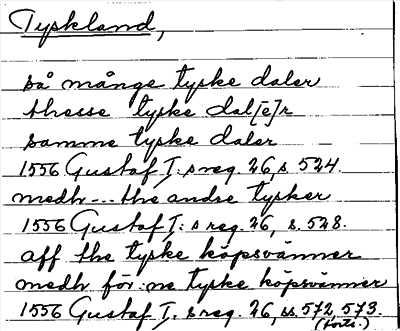 Tyskland,
så många tyske daler
thesse tyske dal[e]r
samme tyske daler
1556 Gustaf I: s reg. 26, s. 524.
medh --- the andre tysker
1556 Gustaf I: s reg. 26, s. 528.
aff the tyske köpsvänner
medh för:ne tyske köpsvänner
1556 Gustaf I: s reg. 26, ss. 572, 573.
(forts.)